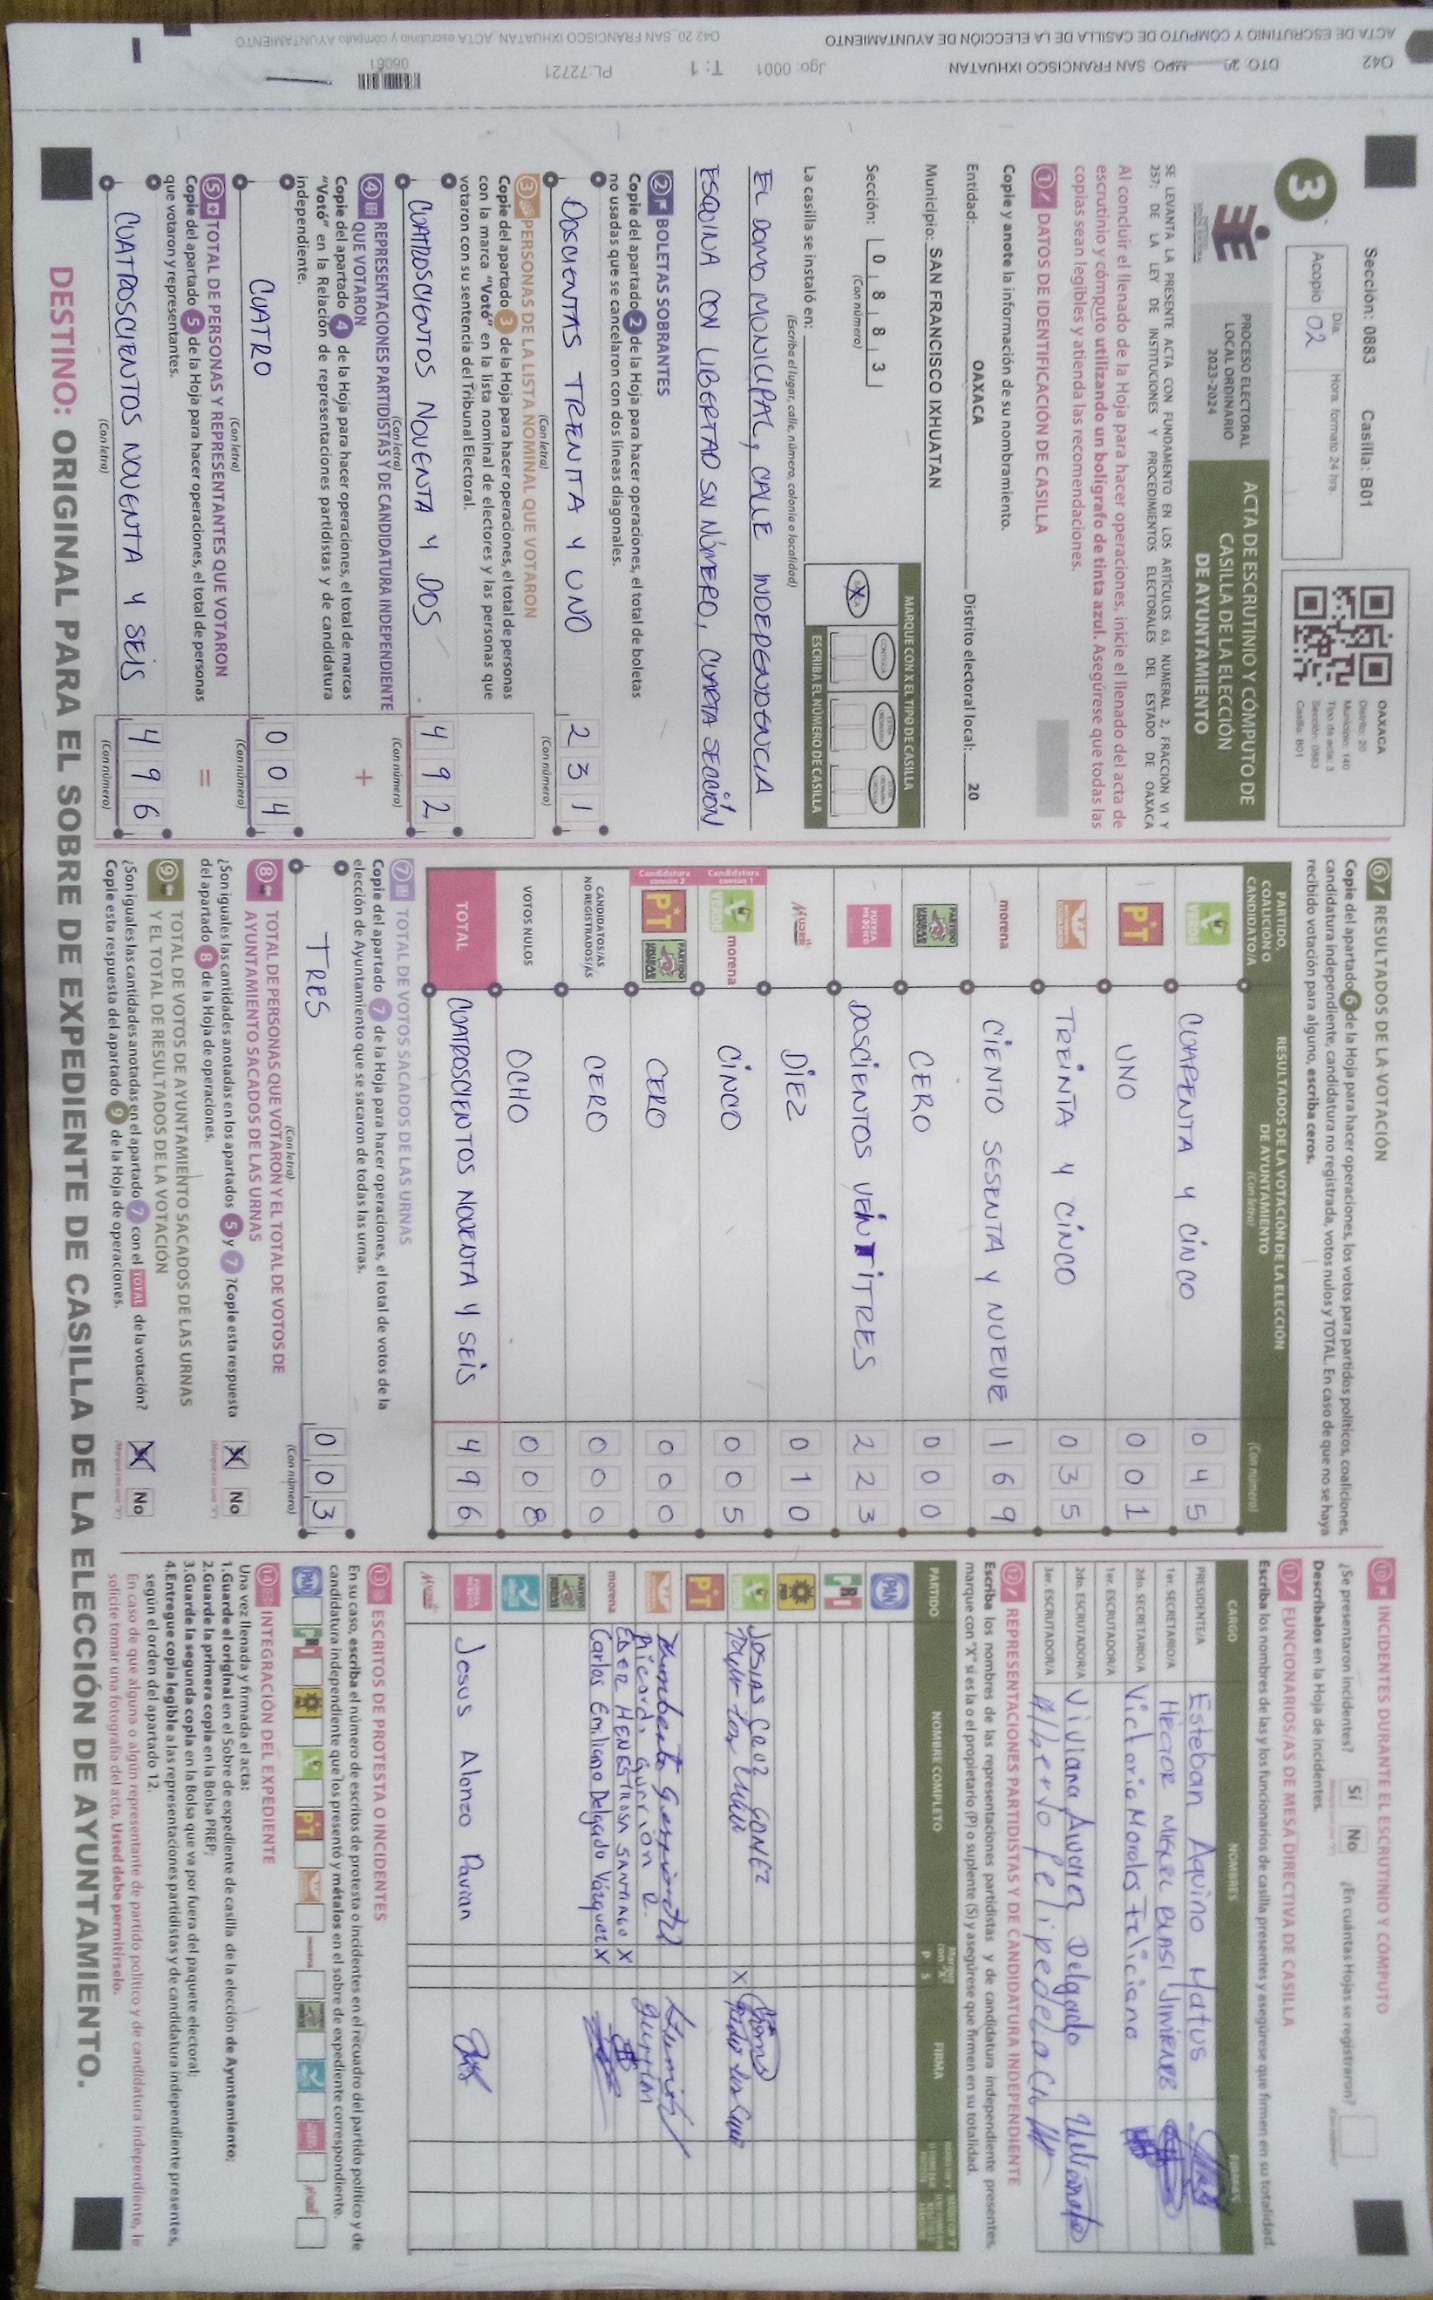 Sección: 0883 Casilla: B01
3
Día: Hora, formato 24 hrs.
Acopio 02
OAXACA
Distrito: 20
Municipio: 140
Tipo de acta: 3
Sección: 0883
Casilla: B01
PROCESO ELECTORAL
LOCAL ORDINARIO
2023-2024
ACTA DE ESCRUTINIO Y CÓMPUTO DE
CASILLA DE LA ELECCIÓN
DE AYUNTAMIENTO
SE LEVANTA LA PRESENTE ACTA CON FUNDAMENTO EN LOS ARTÍCULOS 63, NUMERAL 2, FRACCIÓN VI Y
257; DE LA LEY DE INSTITUCIONES Y PROCEDIMIENTOS ELECTORALES DEL ESTADO DE OAXACA
Al concluir el llenado de la Hoja para hacer operaciones, inicie el llenado del acta de
escrutinio y cómputo utilizando un bolígrafo de tinta azul. Asegúrese que todas las
copias sean legibles y atienda las recomendaciones.
1 DATOS DE IDENTIFICACIÓN DE CASILLA
Copie y anote la información de su nombramiento.
Entidad: OAXACA Distrito electoral local: 20
Municipio: SAN FRANCISCO IXHUATAN
Sección: 0 8 8 3
(Con número)
MARQUE CON X EL TIPO DE CASILLA
ESCRIBA EL NÚMERO DE CASILLA
La casilla se instaló en:
(Escriba el lugar, calle, número, colonia o localidad)
EL DOMO MONICIPAL, CALLE INDEPENDENCIA
ESQUINA CON LIBERTAD SN NÚMERO, CUARTA SECCIÓN
2 BOLETAS SOBRANTES
Copie del apartado 2 de la Hoja para hacer operaciones, el total de boletas
no usadas que se cancelaron con dos líneas diagonales.
DOSCIENTAS TREINTA Y UNO 2 3 1
(Con letra) (Con número)
3 PERSONAS DE LA LISTA NOMINAL QUE VOTARON
Copie del apartado 3 de la Hoja para hacer operaciones, el total de personas
con la marca "Votó" en la lista nominal de electores y las personas que
votaron con su sentencia del Tribunal Electoral.
CUATROSCIENTOS NOVENTA Y DOS 4 9 2
(Con letra) (Con número)
4 REPRESENTACIONES PARTIDISTAS Y DE CANDIDATURA INDEPENDIENTE
QUE VOTARON
Copie del apartado 4 de la Hoja para hacer operaciones, el total de marcas
"Votó" en la Relación de representaciones partidistas y de candidatura
independiente.
+
CUATRO 0 0 4
(Con letra) (Con número)
5 TOTAL DE PERSONAS Y REPRESENTANTES QUE VOTARON
Copie del apartado 5 de la Hoja para hacer operaciones, el total de personas
que votaron y representantes.
=
CUATROSCIENTOS NOVENTA Y SEIS 4 9 6
(Con letra) (Con número)
6 RESULTADOS DE LA VOTACIÓN
Copie del apartado 6 de la Hoja para hacer operaciones, los votos para partidos políticos, coaliciones,
candidatura independiente, candidatura no registrada, votos nulos y TOTAL. En caso de que no se haya
recibido votación para alguno, escriba ceros.
PARTIDO,
COALICIÓN O
CANDIDATO/A
RESULTADOS DE LA VOTACIÓN DE LA ELECCIÓN
DE AYUNTAMIENTO
(Con letra) (Con número)
VERDE CUARENTA Y CINCO 0 4 5
PT UNO 0 0 1
TREINTA Y CINCO 0 3 5
morena CIENTO SESENTA Y NUEVE 1 6 9
PARTIDO UNIDAD POPULAR CERO 0 0 0
FUERZA MÉXICO DOSCIENTOS VEINTITRES 2 2 3
MUJER DIEZ 0 1 0
Candidatura común 1 VERDE morena CINCO 0 0 5
Candidatura común 2 PT PARTIDO UNIDAD POPULAR CERO 0 0 0
CANDIDATOS/AS
NO REGISTRADOS/AS CERO 0 0 0
VOTOS NULOS OCHO 0 0 8
TOTAL CUATROSCIENTOS NOVENTA Y SEIS 4 9 6
7 TOTAL DE VOTOS SACADOS DE LAS URNAS
Copie del apartado 7 de la Hoja para hacer operaciones, el total de votos de la
elección de Ayuntamiento que se sacaron de todas las urnas.
TRES 0 0 3
(Con letra) (Con número)
8 TOTAL DE PERSONAS QUE VOTARON Y EL TOTAL DE VOTOS DE
AYUNTAMIENTO SACADOS DE LAS URNAS
¿Son iguales las cantidades anotadas en los apartados 5 y 7? Copie esta respuesta
del apartado 8 de la Hoja de operaciones.
X No
9 TOTAL DE VOTOS DE AYUNTAMIENTO SACADOS DE LAS URNAS
Y EL TOTAL DE RESULTADOS DE LA VOTACIÓN
¿Son iguales las cantidades anotadas en el apartado 7 con el TOTAL de la votación?
Copie esta respuesta del apartado 9 de la Hoja de operaciones.
X No
10 INCIDENTES DURANTE EL ESCRUTINIO Y CÓMPUTO
¿Se presentaron incidentes? Sí No ¿En cuántas Hojas se registraron?
Descríbalos en la Hoja de incidentes.
11 FUNCIONARIOS/AS DE MESA DIRECTIVA DE CASILLA
Escriba los nombres de las y los funcionarios de casilla presentes y asegúrese que firmen en su totalidad.
CARGO NOMBRES FIRMAS
PRESIDENTE/A Esteban Aquino Matus
1er. SECRETARIO/A HÉCTOR MIGUEL BLASI JIMENEZ
2do. SECRETARIO/A Victoria Morales Feliciano
1er. ESCRUTADOR/A
2do. ESCRUTADOR/A Viviana Avdrer Delgado
3er. ESCRUTADOR/A Alberto Felipe de la Cru
12 REPRESENTACIONES PARTIDISTAS Y DE CANDIDATURA INDEPENDIENTE
Escriba los nombres de las representaciones partidistas y de candidatura independiente presentes,
marque con "X" si es la o el propietario (P) o suplente (S) y asegúrese que firmen en su totalidad.
PARTIDO NOMBRE COMPLETO Marque con "X" P S FIRMA
PAN
PRI
VERDE JOSIAS CRUZ GOMEZ
X
PT
Ricardo Guerion
morena EDER HENESTROSA SANTIAGO X
Carlos Emiliano Delgado Vázquez X
Jesus Alonzo Pavian
13 ESCRITOS DE PROTESTA O INCIDENTES
En su caso, escriba el número de escritos de protesta o incidentes en el recuadro del partido político y de
candidatura independiente que los presentó y métalos en el sobre de expediente correspondiente.
14 INTEGRACIÓN DEL EXPEDIENTE
Una vez llenada y firmada el acta:
1.Guarde el original en el Sobre de expediente de casilla de la elección de Ayuntamiento;
2.Guarde la primera copia en la Bolsa PREP;
3.Guarde la segunda copia en la Bolsa que va por fuera del paquete electoral;
4.Entregue copia legible a las representaciones partidistas y de candidatura independiente presentes,
según el orden del apartado 12.
En caso de que alguna o algún representante de partido político y de candidatura independiente, le
solicite tomar una fotografía del acta, Usted debe permitírselo.
DESTINO: ORIGINAL PARA EL SOBRE DE EXPEDIENTE DE CASILLA DE LA ELECCIÓN DE AYUNTAMIENTO.
042 DTO: 20 MPO: SAN FRANCISCO IXHUATAN Jgo: 0001 T: 1 PL:72721 06061
ACTA DE ESCRUTINIO Y CÓMPUTO DE CASILLA DE LA ELECCIÓN DE AYUNTAMIENTO 042 20 SAN FRANCISCO IXHUATAN ACTA escrutinio y cómputo AYUNTAMIENTO